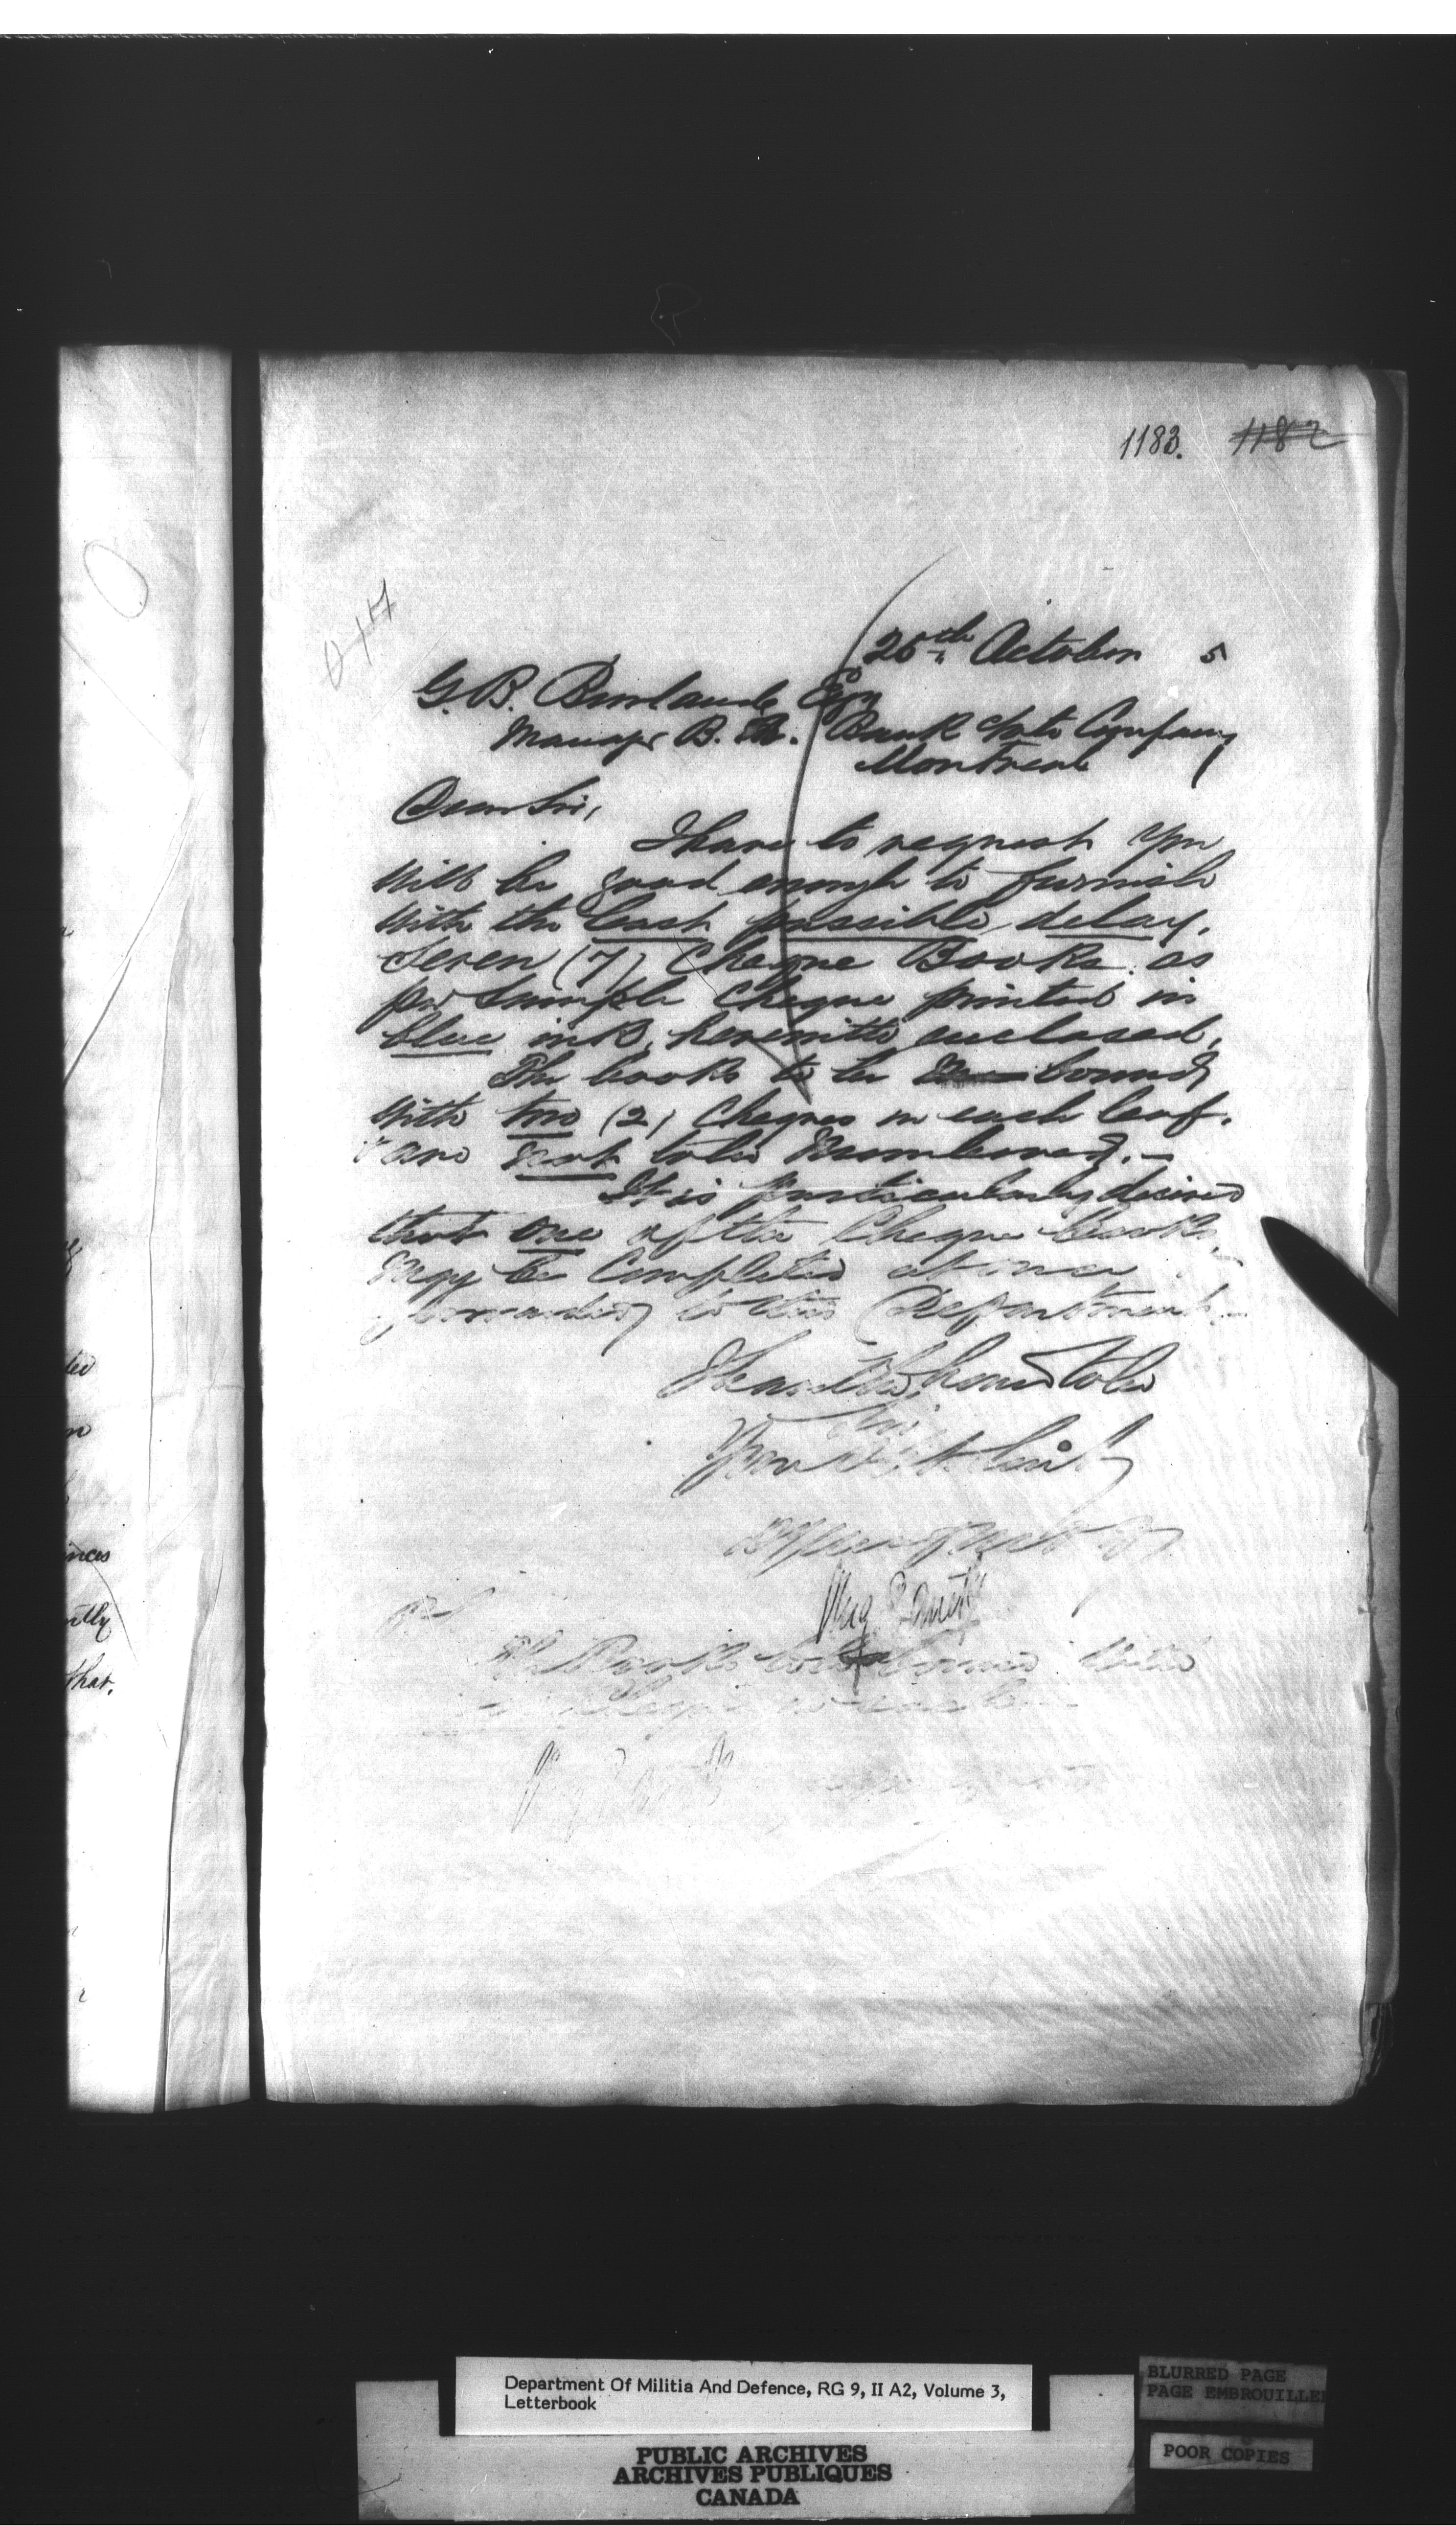 1183. 1182
26th October 5
G. B. Burland Esq
Manager B. A. Bank Note Company
Montreal
Dear Sir,
I have to request you
will be good enough to furnish
with the least possible delay,
Seven (7) Cheque Books as
per Sample Cheque printed in
blue ink, herewith enclosed,
The books to be bound
with two (2) Cheques in each leaf.
and not to be Numbered.—
It is particularly desired
that one of the Cheque books
may be Completed at once
forwarded to this Department.—
I have the honor to be
Sir
Your
The Books to be bound with
inces
ntly
that.
Department Of Militia And Defence, RG 9, II A2, Volume 3,
Letterbook
PUBLIC ARCHIVES
ARCHIVES PUBLIQUES
CANADA
BLURRED PAGE
PAGE EMBROUILLE
POOR COPIES